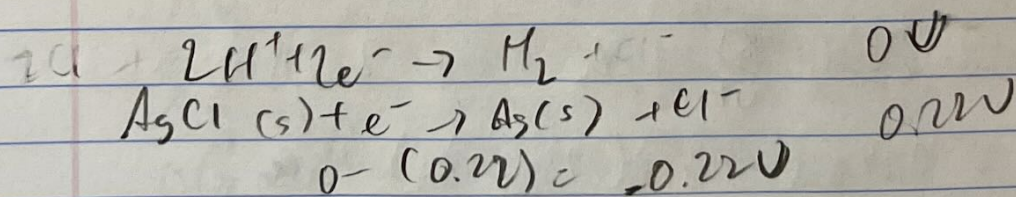 2Cl + 2H⁺+2e⁻ → H₂ + Cl⁻ 0V
AgCl (s)+e⁻ → Ag(s) +Cl⁻ 0.22V
0-(0.22)= -0.22V